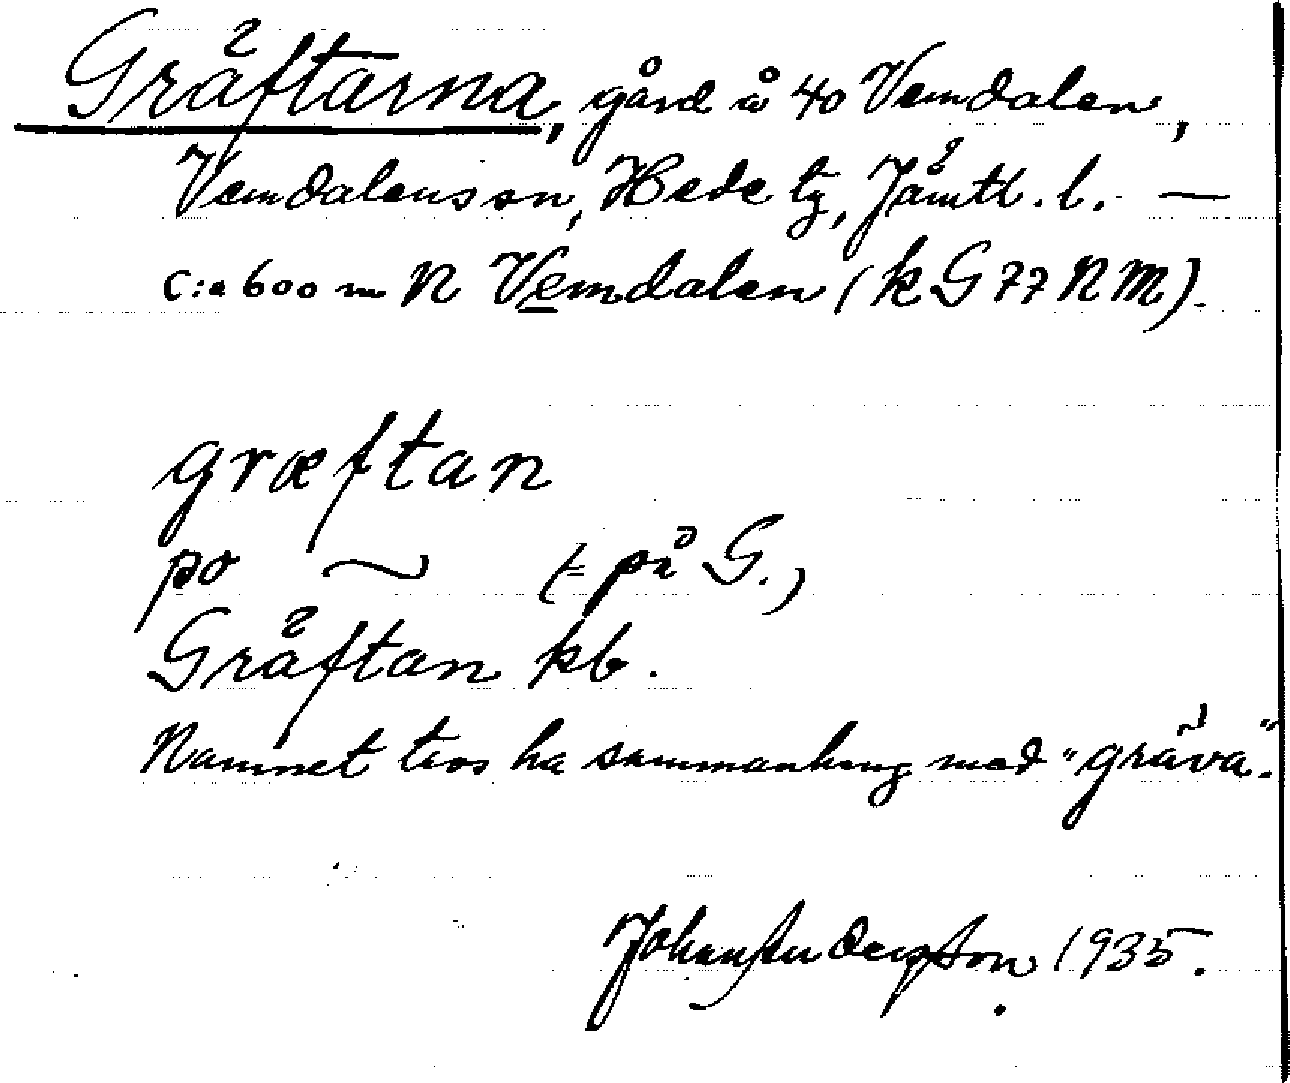 Gräftarna, gård å 40 Vemdalen,
Vemdalens sn, Hede tg, Jämtl. l. —
c:a 600 m N Vemdalen (k G 77 N M).
græftan
po ~ (= på G.)
Gräftan kb.
Namnet tros ha sammanhang med "gräva".
Johan Anderzson 1935.